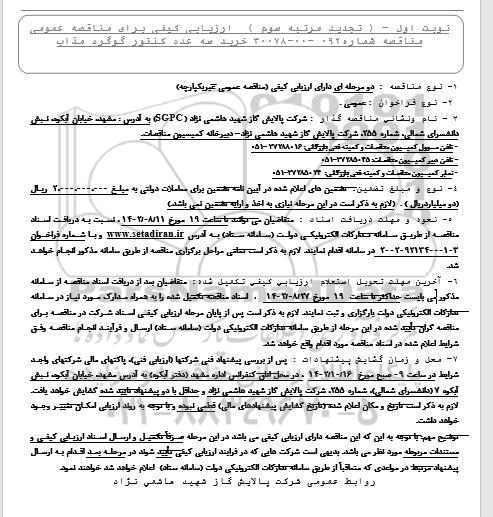 نوبت اول - ( تجدید مرتبه سوم ) ارزیابی کیفی برای مناقصه عمومی
مناقصه شماره ۰۹۲-۰۰-۳۰۰۷۸ خرید سه عدد کنتور گوگرد مذاب
۱- نوع مناقصه : دو مرحله ای دارای ارزیابی کیفی (مناقصه عمومی غیریکپارچه)
۲- نوع فراخوان : عمومی .
۳- نام ونشانی مناقصه گذار : شرکت پالایش گاز شهید هاشمی نژاد (SGPC) به آدرس : مشهد، خیابان آبکوه، نبش
دانشسرای شمالی، شماره ۲۵۵، شرکت پالایش گاز شهید هاشمی نژاد-دبیرخانه کمیسیون مناقصات.
-تلفن مسوول کمیسیون مناقصات و کمیته فنی بازرگانی: ۳۷۲۸۸۰۱۶-۰۵۱
-تلفن دبیر کمیسیون مناقصات: ۳۷۲۸۵۰۲۵-۰۵۱
-نمابر کمیسیون مناقصات و کمیته فنی بازرگانی: ۳۷۲۸۵۰۲۴-۰۵۱
۴- نوع و مبلغ تضمین- تضمین های اعلام شده در آیین نامه تضمین برای معاملات دولتی به مبلغ ۲.۰۰۰.۰۰۰.۰۰۰ ریال
(دو میلیاردریال) . (لازم به ذکر است در این مرحله نیازی به اخذ و ارایه تضمین نمی باشد)
۵- نحوه و مهلت دریافت اسناد : متقاضیان می توانند تا ساعت ۱۹ مورخ ۱۴۰۲/۰۸/۱۱ نسبت به دریافت اسناد
مناقصه از طریق سامانه تدارکات الکترونیکی دولت (سامانه ستاد) به آدرس www.setadiran.ir و با شماره فراخوان
در سامانه اقدام نمایند. لازم به ذکر است تمامی مراحل برگزاری مناقصه از طریق سامانه مذکور انجام خواهد
شد.
۶- آخرین مهلت تحویل استعلام ارزیابی کیفی تکمیل شده: متقاضیان بعد از دریافت اسناد مناقصه از سامانه
مذکور می بایست حداکثر تا ساعت ۱۹ مورخ اسناد مناقصه تکمیل شده را به همراه مدارک مورد نیاز در سامانه
تدارکات الکترونیکی دولت بارگزاری و ثبت نمایند. لازم به ذکر است پس از پایان مرحله ارزیابی کیفی اسناد شرکت در مناقصه برای
مناقصه گران تأیید شده در این مرحله از طریق سامانه تدارکات الکترونیکی دولت (سامانه ستاد) ارسال و فرآیند انجام مناقصه وفق
شرایط اعلام شده در اسناد مناقصه مورد اقدام واقع خواهد شد.
۷- محل و زمان گشایش پیشنهادات : پس از بررسی پیشنهاد فنی شرکتها (ارزیابی فنی)، پاکتهای مالی شرکتهای واجد
شرایط در ساعت ۹ صبح مورخ در محل اتاق کنفرانس اداره مشهد (دفتر آبکوه) به آدرس مشهد، خیابان آبکوه، نبش
آبکوه ۷ (دانشسرای شمالی)، شماره ۲۵۵، شرکت پالایش گاز شهید هاشمی نژاد و حداقل با دو پیشنهاد تایید شده گشایش خواهد یافت.
لازم به ذکر است تاریخ و مکان اعلام شده (تاریخ گشایش پیشنهادهای مالی) قطعی نبوده و با توجه به روند ارزیابی امکان تغییر وجود
خواهد داشت.
توضیح مهم: با توجه به این که این مناقصه دارای ارزیابی کیفی می باشد در این مرحله صرفا تکمیل و ارسال اسناد ارزیابی کیفی و
مستندات مربوطه مورد نظر می باشد. بدیهی است شرکت هایی که در فرایند ارزیابی کیفی تأیید شوند در مرحله بعد اقدام به ارسال
پیشنهاد مرتبط در مواعدی که متعاقباً از طریق سامانه تدارکات الکترونیکی دولت (سامانه ستاد) اعلام خواهد شد خواهند نمود.
روابط عمومی شرکت پالایش گاز شهید هاشمی نژاد